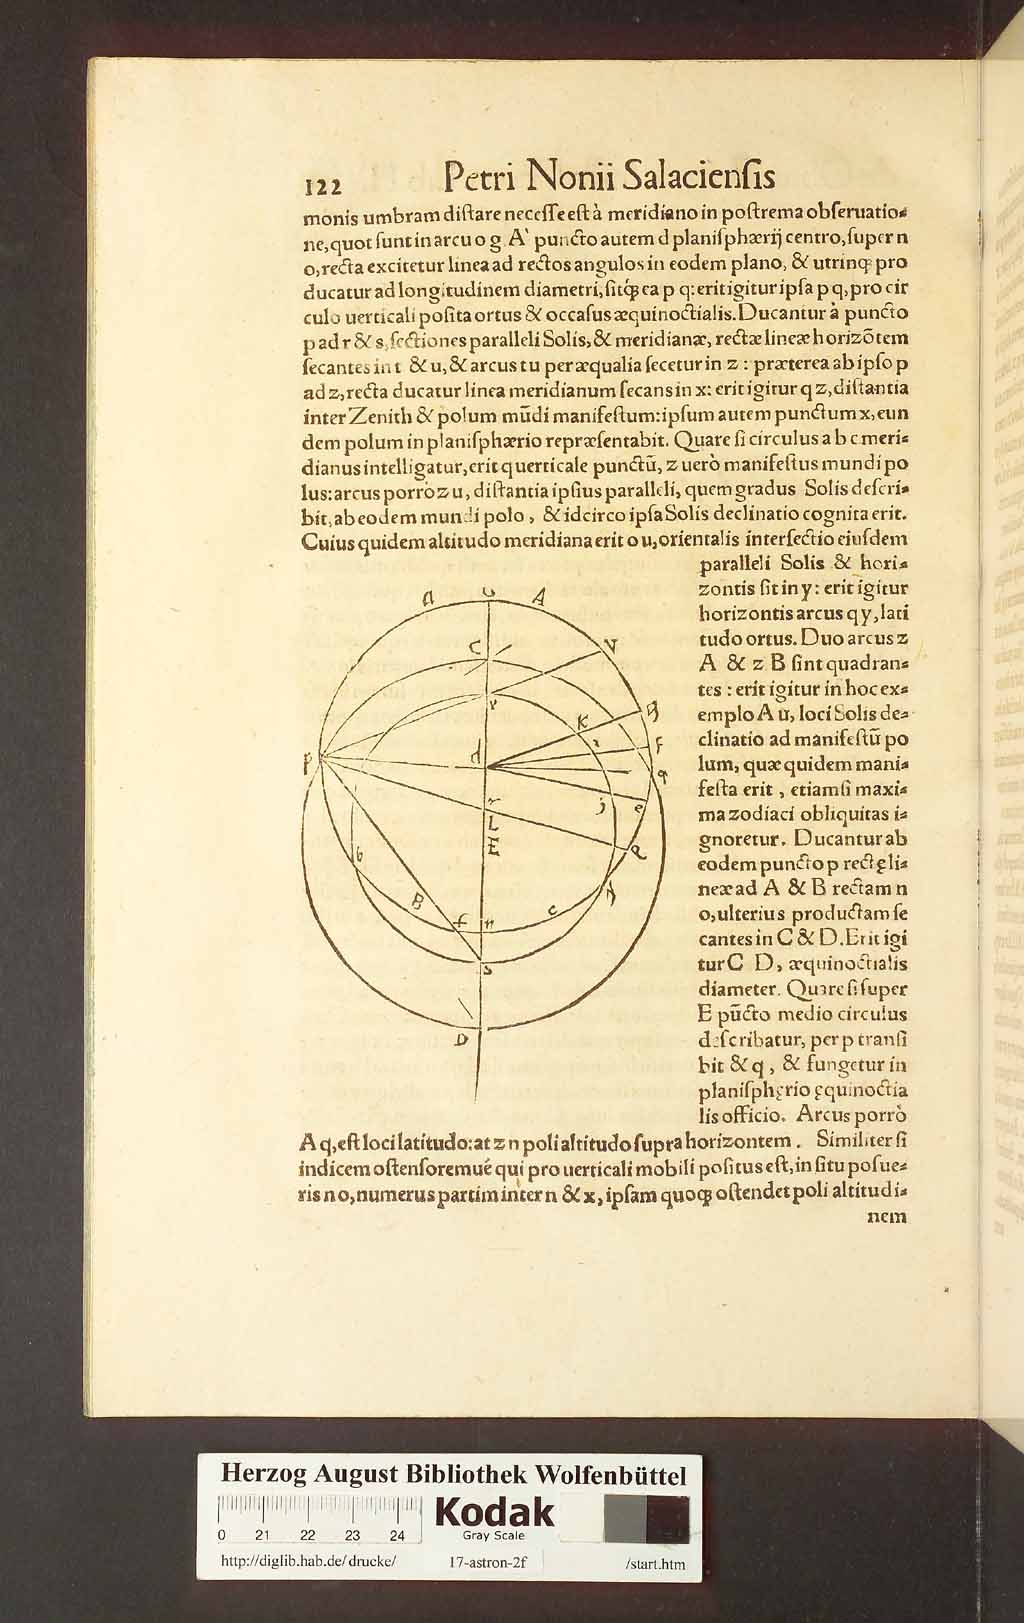 122
Petri Nonii Salaciensis
monis umbram distare necesse est à meridiano in postrema obseruatio⸗
ne, quot sunt in arcu o g. A' puncto autem d planisphærij centro, super n
o, recta excitetur linea ad rectos angulos in eodem plano, & utrinq; pro
ducatur ad longitudinem diametri, sitq́; ea p q: erit igitur ipsa p q, pro cir
culo uerticali posita ortus & occasus æquinoctialis. Ducantur à puncto
p ad r & s, sectiones paralleli Solis, & meridianæ, rectæ lineæ horizõtem
secantes in t & u, & arcus t u per æqualia secetur in z : præterea ab ipso p
ad z, recta ducatur linea meridianum secans in x: erit igitur q z, distantia
inter Zenith & polum mũdi manifestum: ipsum autem punctum x, eun
dem polum in planisphærio repræsentabit. Quare si circulus a b c meri⸗
dianus intelligatur, erit q uerticale punctũ, z uerò manifestus mundi po
lus: arcus porrò z u, distantia ipsius paralleli, quem gradus Solis descri⸗
bit, ab eodem mundi polo, & idcirco ipsa Solis declinatio cognita erit.
Cuius quidem altitudo meridiana erit o u, orientalis intersectio eiusdem
paralleli Solis & hori⸗
zontis sit in y: erit igitur
horizontis arcus q y, lati
tudo ortus. Duo arcus z
A & z B sint quadran⸗
tes : erit igitur in hoc ex⸗
emplo A u, loci Solis de⸗
clinatio ad manifestũ po
lum, quæ quidem mani⸗
festa erit, etiamsi maxi⸗
ma zodiaci obliquitas i⸗
gnoretur. Ducantur ab
eodem puncto p rectę li⸗
neæ ad A & B rectam n
o, ulterius productam se
cantes in C & D. Erit igi
tur C D, æquinoctialis
diameter. Quare si super
E pũcto medio circulus
describatur, per p transi
bit & q, & fungetur in
planisphęrio ęquinoctia
lis officio. Arcus porrò
A q, est loci latitudo: at z n poli altitudo supra horizontem. Similiter si
indicem ostensorem ué qui pro uerticali mobili positus est, in situ posue⸗
ris n o, numerus partim inter n & x, ipsam quoq; ostendet poli altitudi⸗
nem
a
A
C
V
r
K
B
F
p
d
q
j
e
L
E
b
B
f
n
c
s
D
Herzog August Bibliothek Wolfenbüttel
0 21 22 23 24
Kodak
Gray Scale
http://diglib.hab.de/drucke/
17-astron-2f
/start.htm